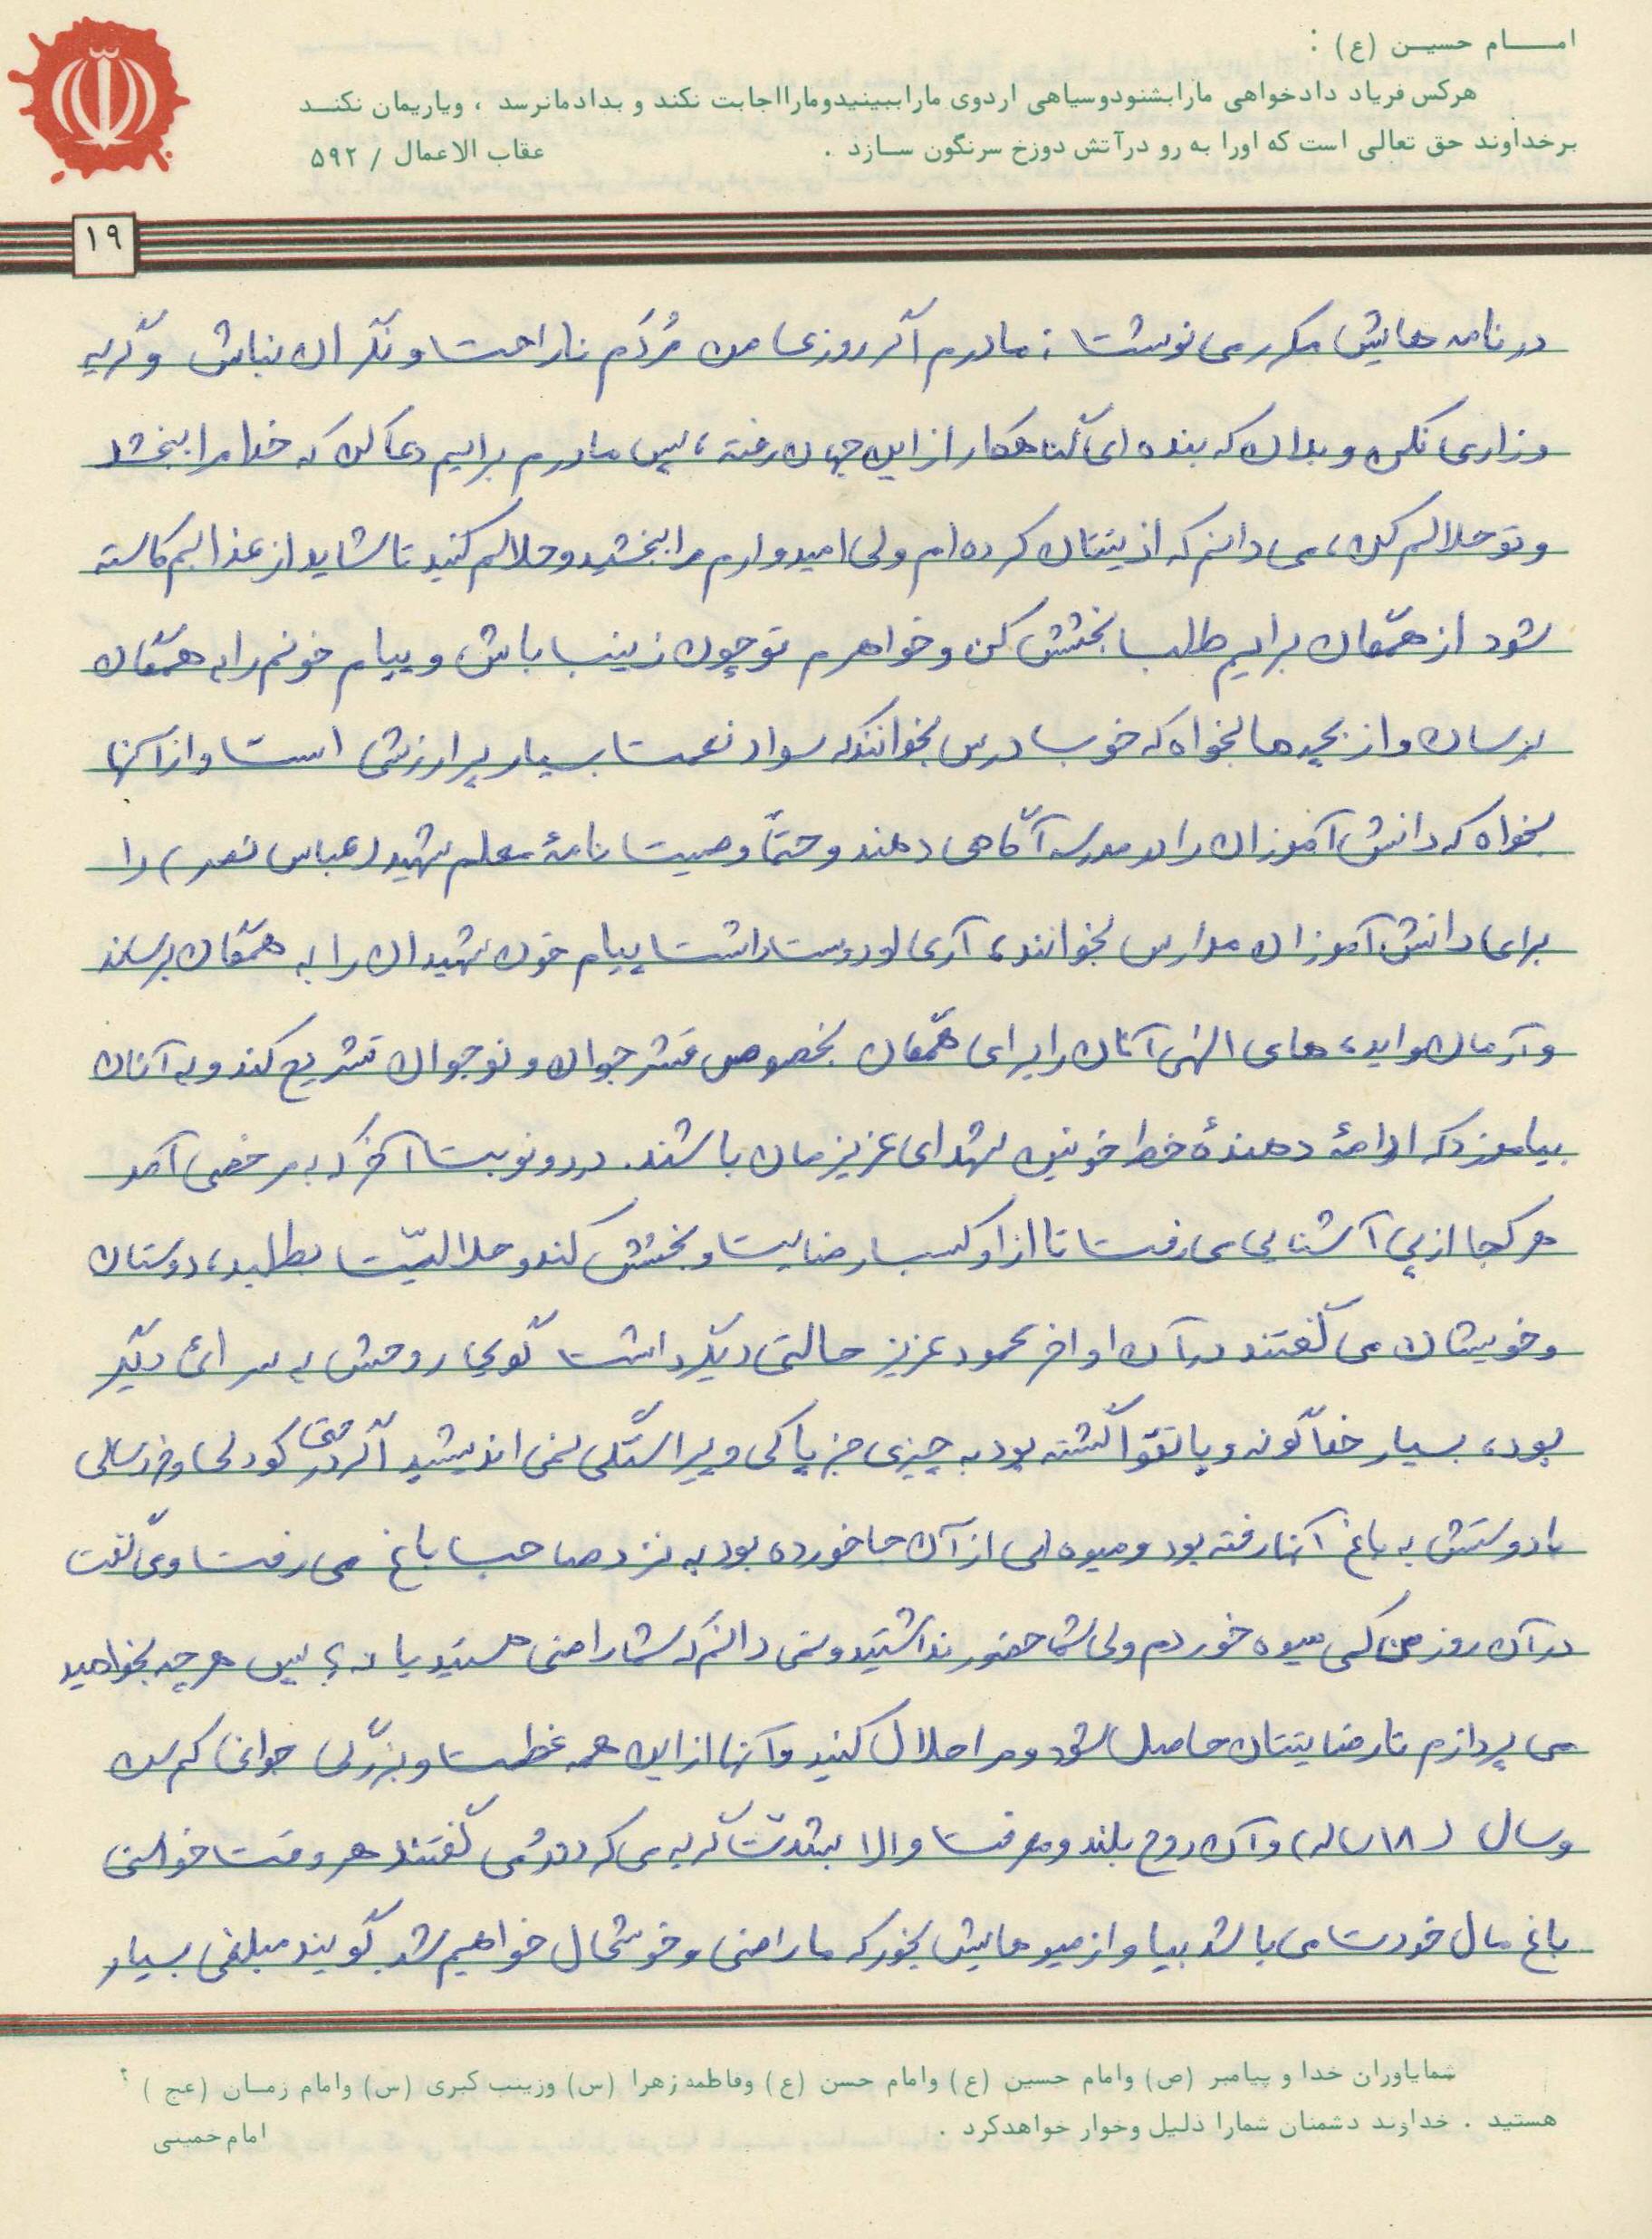 امـــام حسیـن (ع) :
هرکس فریاد دادخواهی مارابشنودوسیاهی اردوی ماراببینیدومارااجابت نکند و بدادمانرسد ، ویاریمان نکنـد
برخداوند حق تعالی است که اورا به رو درآتش دوزخ سرنگون سـازد .
عقاب الاعمال / ۵۹۲
۱۹
در نامه هایش مکرر می نوشت : مادرم اگر روزی من مُردَم ناراحت و نگران نباش و گریه
و زاری نکن و بدان که بنده ای گناهکار از این جهان رفته ، پس مادرم برایم دعا کن که خدا مرا ببخشد
و تو حلالم کن ، می دانم که اذیتتان کرده ام ولی امیدوارم مرا ببخشید و حلالم کنید تا شاید از عذابم کاسته
شود از همگان برایم طلب بخشش کن و خواهرم تو چون زینب باش و پیام خونم را به همگان
برسان و از بچه ها بخواه که خوب درس بخوانند که سواد نعمت بسیار پر ارزشی است و از آنها
بخواه که دانش آموزان را در مدرسه آگاهی دهند و حتماً وصیت نامهٔ معلم شهید (عباس نصر) را
برای دانش آموزان مدارس بخوانند ، آری او دوست داشت پیام خون شهیدان را به همگان برساند
و آرمان و ایده های الهی آنان را برای همگان بخصوص قشر جوان و نوجوان تشریح کند و به آنان
بیاموزد که ادامهٔ دهندهٔ خط خونین شهدای عزیزمان باشند . در دو نوبت آخر که به مرخصی آمد
هر کجا از پی آشنایی می رفت تا از او کسب رضایت و بخشش کند و حلالیّت بطلبد ، دوستان
و خویشان می گفتند در آن اواخر محمود عزیز حالتی دیگر داشت گویی روحش به سرائ دیگر
بود ، بسیار خداگونه و با تقوا گشته بود به چیزی جز پاکی و پیراستگی نمی اندیشید اگر در حتی کودکی و خردسالی
با دوستش به باغ آنها رفته بود و میوه ای از آن جا خورده بود به نزد صاحب باغ می رفت و می گفت
در آن روز من کمی میوه خوردم ولی شما حضور نداشتید و نمی دانم که شما راضی هستید یا نه ؟ پس هر چه بخواهید
می پردازم تا رضایتتان حاصل شود و مرا حلال کنید و آنها از این همه عظمت و بزرگی جوانی کم سن
و سال ( ۱۸ ساله ) و آن روح بلند و معرفت والا بشدّت گریه می کردند و می گفتند هر وقت خواستی
باغ مال خودت می باشد بیا و از میوهایش بخور که ما راضی و خوشحال خواهیم شد . گویند مبلغی بسیار
شمایاوران خدا و پیامبر (ص) وامام حسین (ع) وامام حسن (ع) وفاطمه زهرا (س) وزینب کبری (س) وامام زمـان (عج ) :
هستید . خداوند دشمنان شمارا ذلیل وخوار خواهدکرد .
امام خمینی